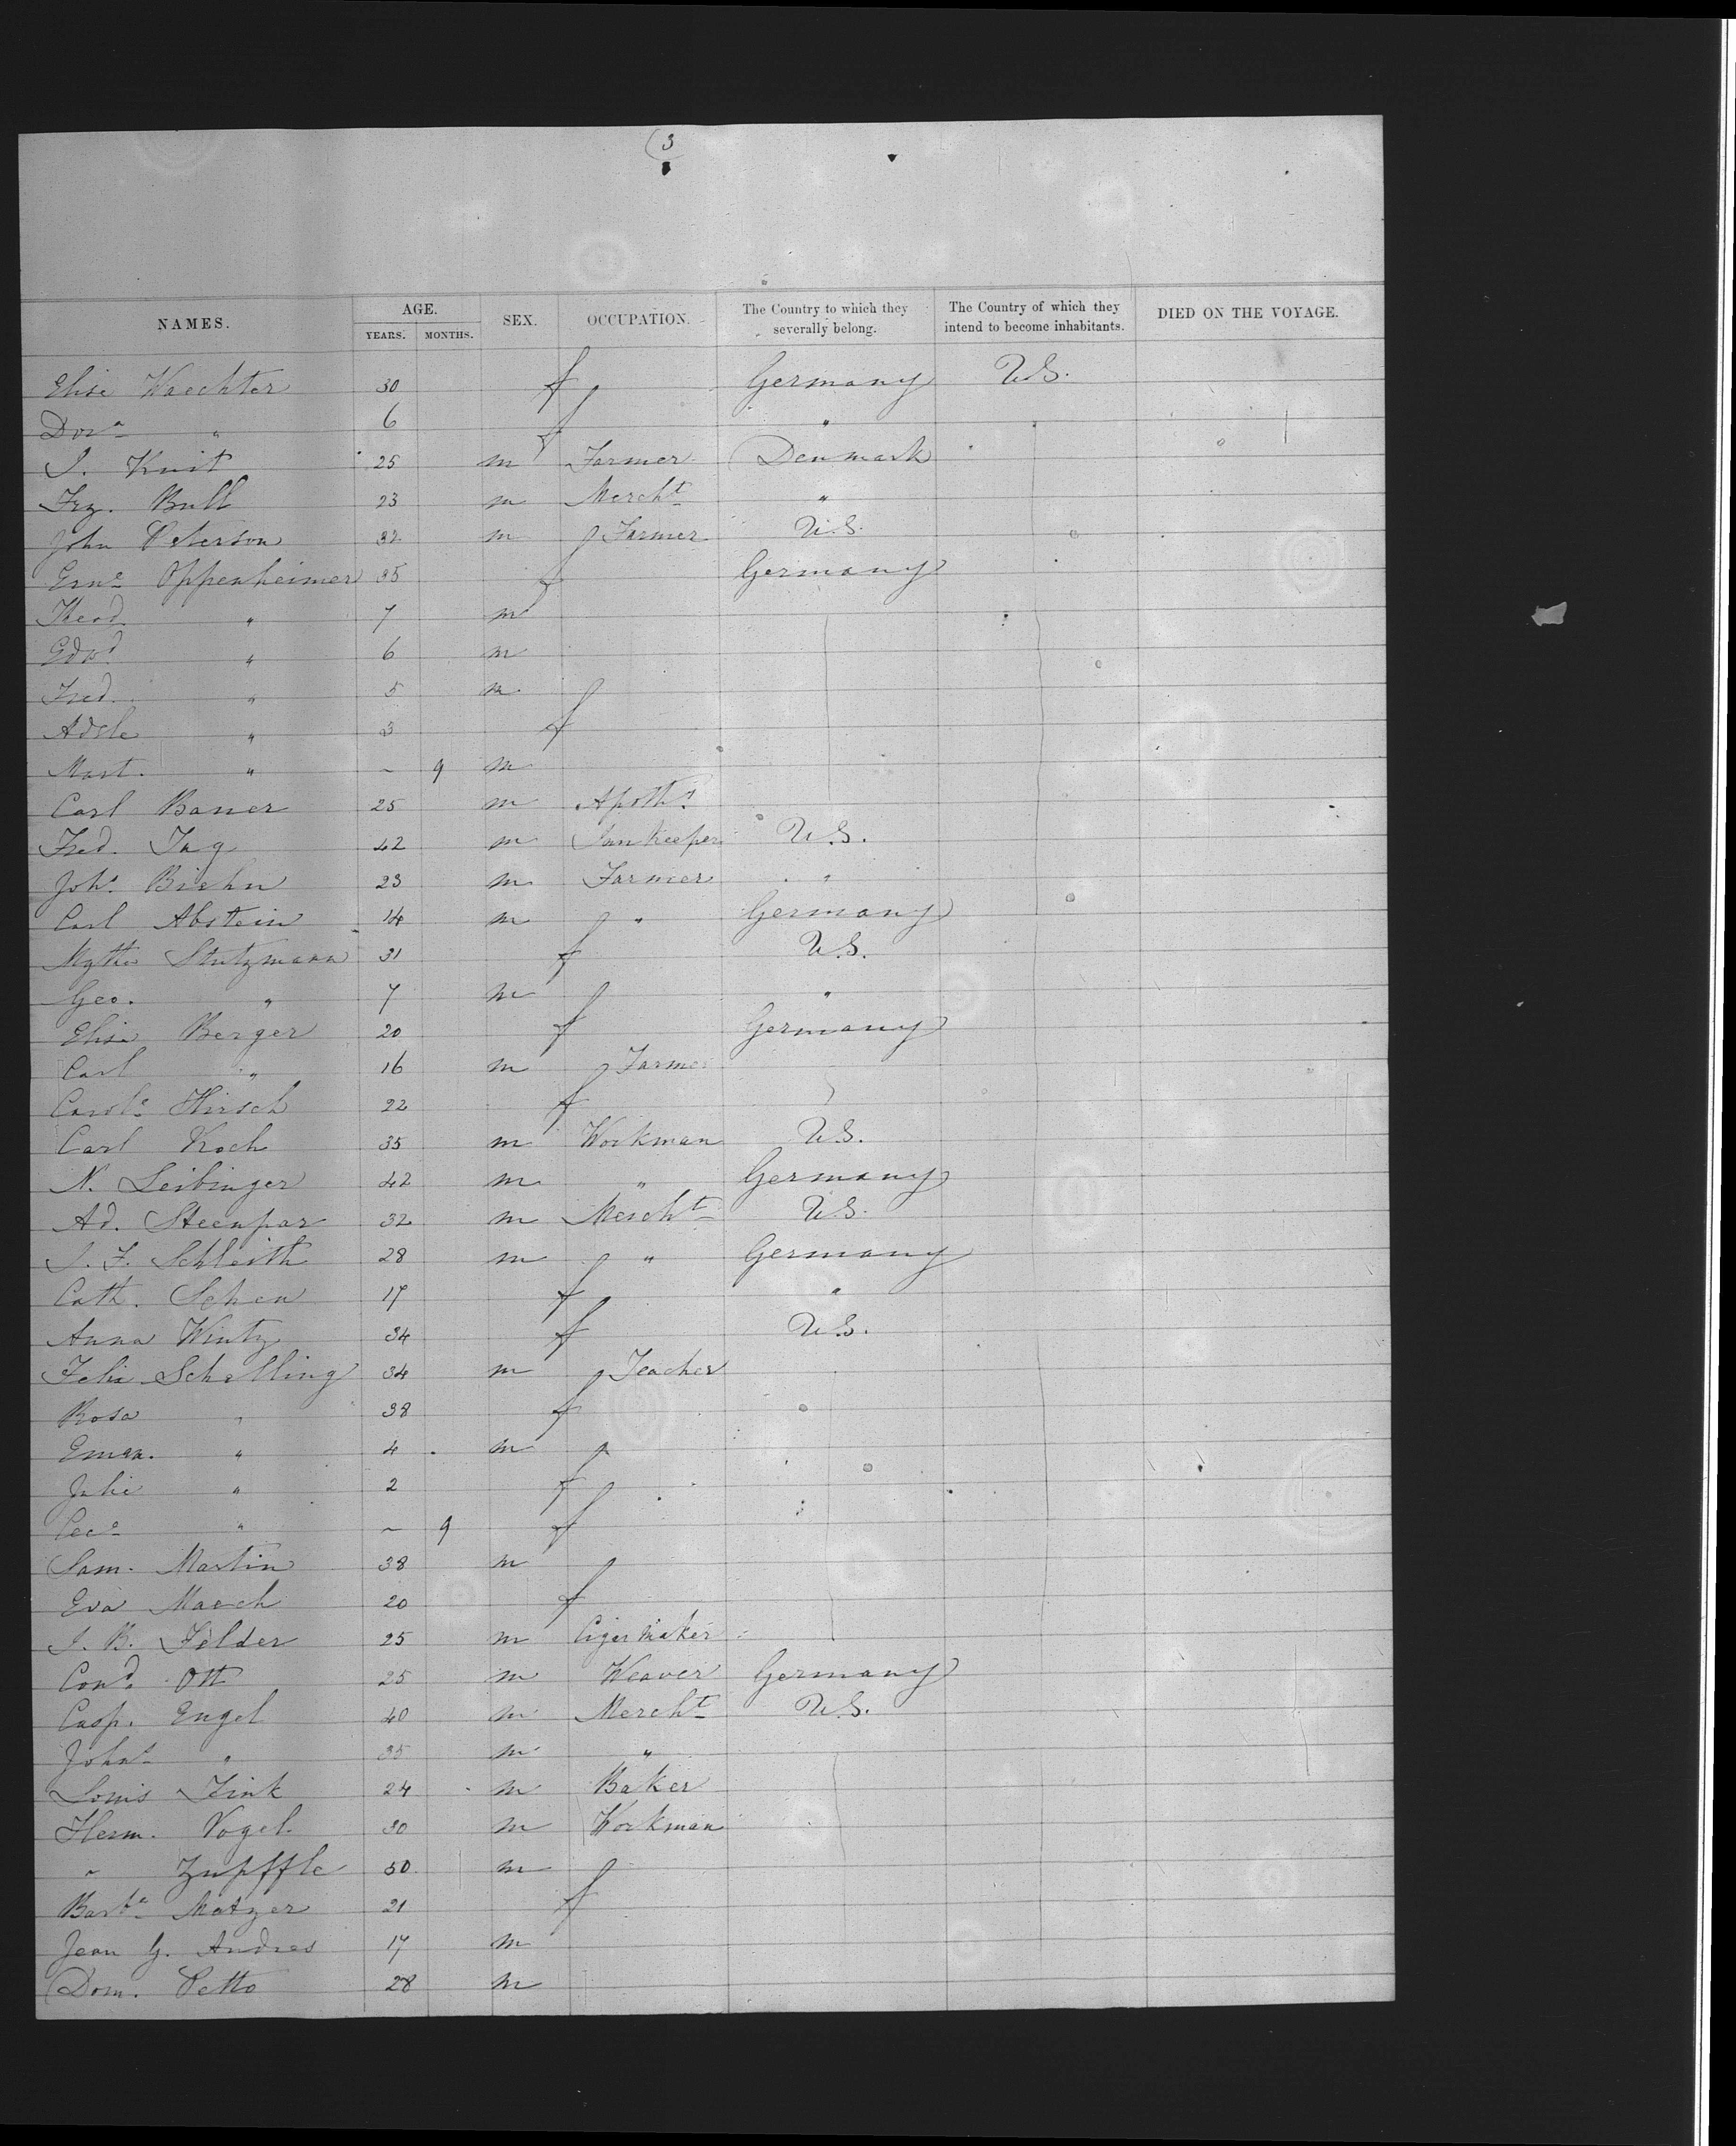 (3
NAMES. AGE. SEX. OCCUPATION. The Country to which they severally belong. The Country of which they intend to become inhabitants. DIED ON THE VOYAGE.
YEARS. MONTHS.
Elise Waechter 30 f Germany U.S.
Dora " 6 f "
J. Knit 25 m Farmer Denmark
Frz. Bull 23 m Mercht "
John Peterson 32 m Farmer U.S.
Erne Oppenheimer 35 f Germany
Theod. " 7 m
Edwd " 6 m
Fred. " 5 m
Adele " 3 f
Mart. " ~ 9 m
Carl Bauer 25 m Apoths
Fred. Tag 42 m Innkeeper U.S.
Johs Biehn 23 m Farmer "
Carl Abstein 14 m " Germany
Mgthe Stutzmann 31 f U.S.
Geo. " 7 m "
Elisa Berger 20 f Germany
Carl " 16 m Farmer
Carole Hirsch 22 f
Carl Koch 35 m Workman U.S.
N. Leibinger 42 m " Germany
Ad. Steenpar 32 m Mercht U.S.
J. F. Schleith 28 m " Germany
Cath. Schen 17 f "
Anna Wintz 34 f U.S.
Felix Schelling 34 m Teacher
Rosa " 38 f
Eman. " 4 m
Julie " 2 f
Cece " ~ 9 f
Sam. Martin 38 m
Eva March 20 f
J. B. Felder 25 m Cigar Maker
Cond Ott 25 m Weaver Germany
Casp. Engel 40 m Mercht U.S.
Johns " 35 m "
Louis Fink 24 m Baker
Herm. Vogel 30 m Workman
" Zupffle 50 m
Barba Matzer 21 f
Jean G. Andres 17 m
Dom. Petto 28 m